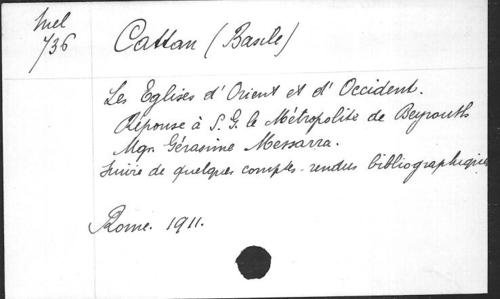 Mel
736
Cattan (Basile)
Les Eglises d'Orient et d'Occident.
Réponse à S. G. le Métropolite de Beyrouth
Mgr. Gérasime Messarra.
Suivie de quelques comptes-rendus bibliographiques
Rome. 1911.